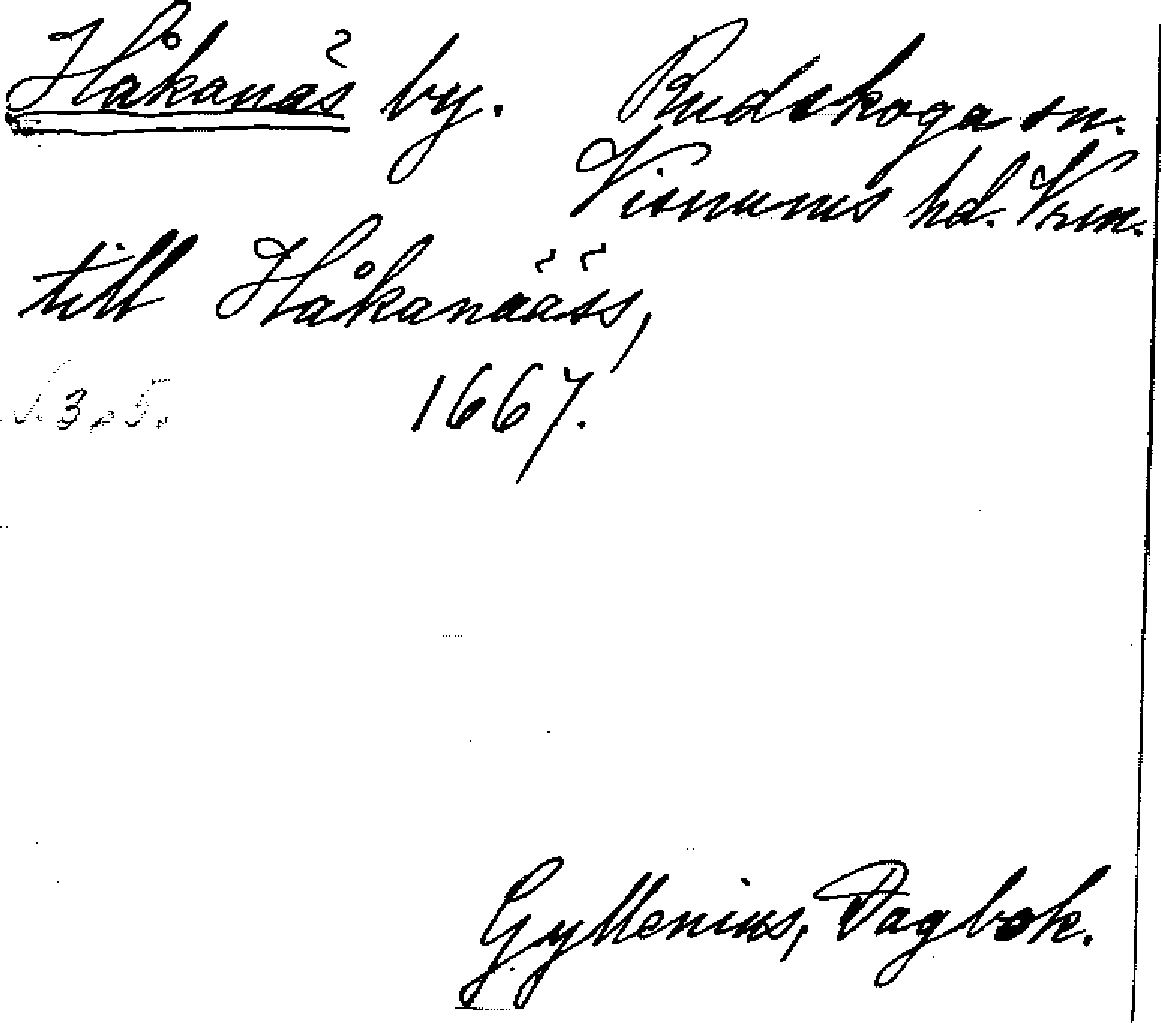 Håkanäs by. Rudskoga sn.
Visnums hd. Vrm.
till Håkanääss,
1667.
Gyllenius, Dagbok.